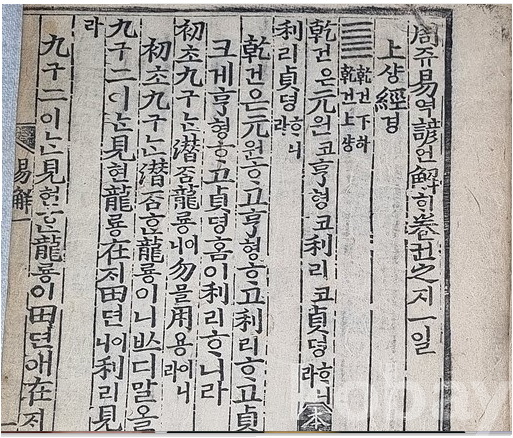 周쥬易역諺언解ᄒᆡ卷권之지一일
上샹經경
䷀ 乾건下하 乾건上샹
乾건은元원코亨형코利리코貞뎡ᄒᆞ니라
利리貞뎡ᄒᆞ니라
乾건은元원ᄒᆞ고亨형ᄒᆞ고利리ᄒᆞ고貞
크게亨형ᄒᆞ고貞뎡홈이利리ᄒᆞ니라
初초九구ᄂᆞᆫ潛ᄌᆞᆷ龍룡이니勿믈用용이니라
初초九구ᄂᆞᆫ潛ᄌᆞᆷᄒᆞᆫ龍룡이니ᄡᅳ디말올
九구二이ᄂᆞᆫ見현龍룡在ᄌᆡ田뎐이니利리見
라
九구二이ᄂᆞᆫ見현ᄒᆞᆫ龍룡이田뎐애在ᄌᆡ
易解
本